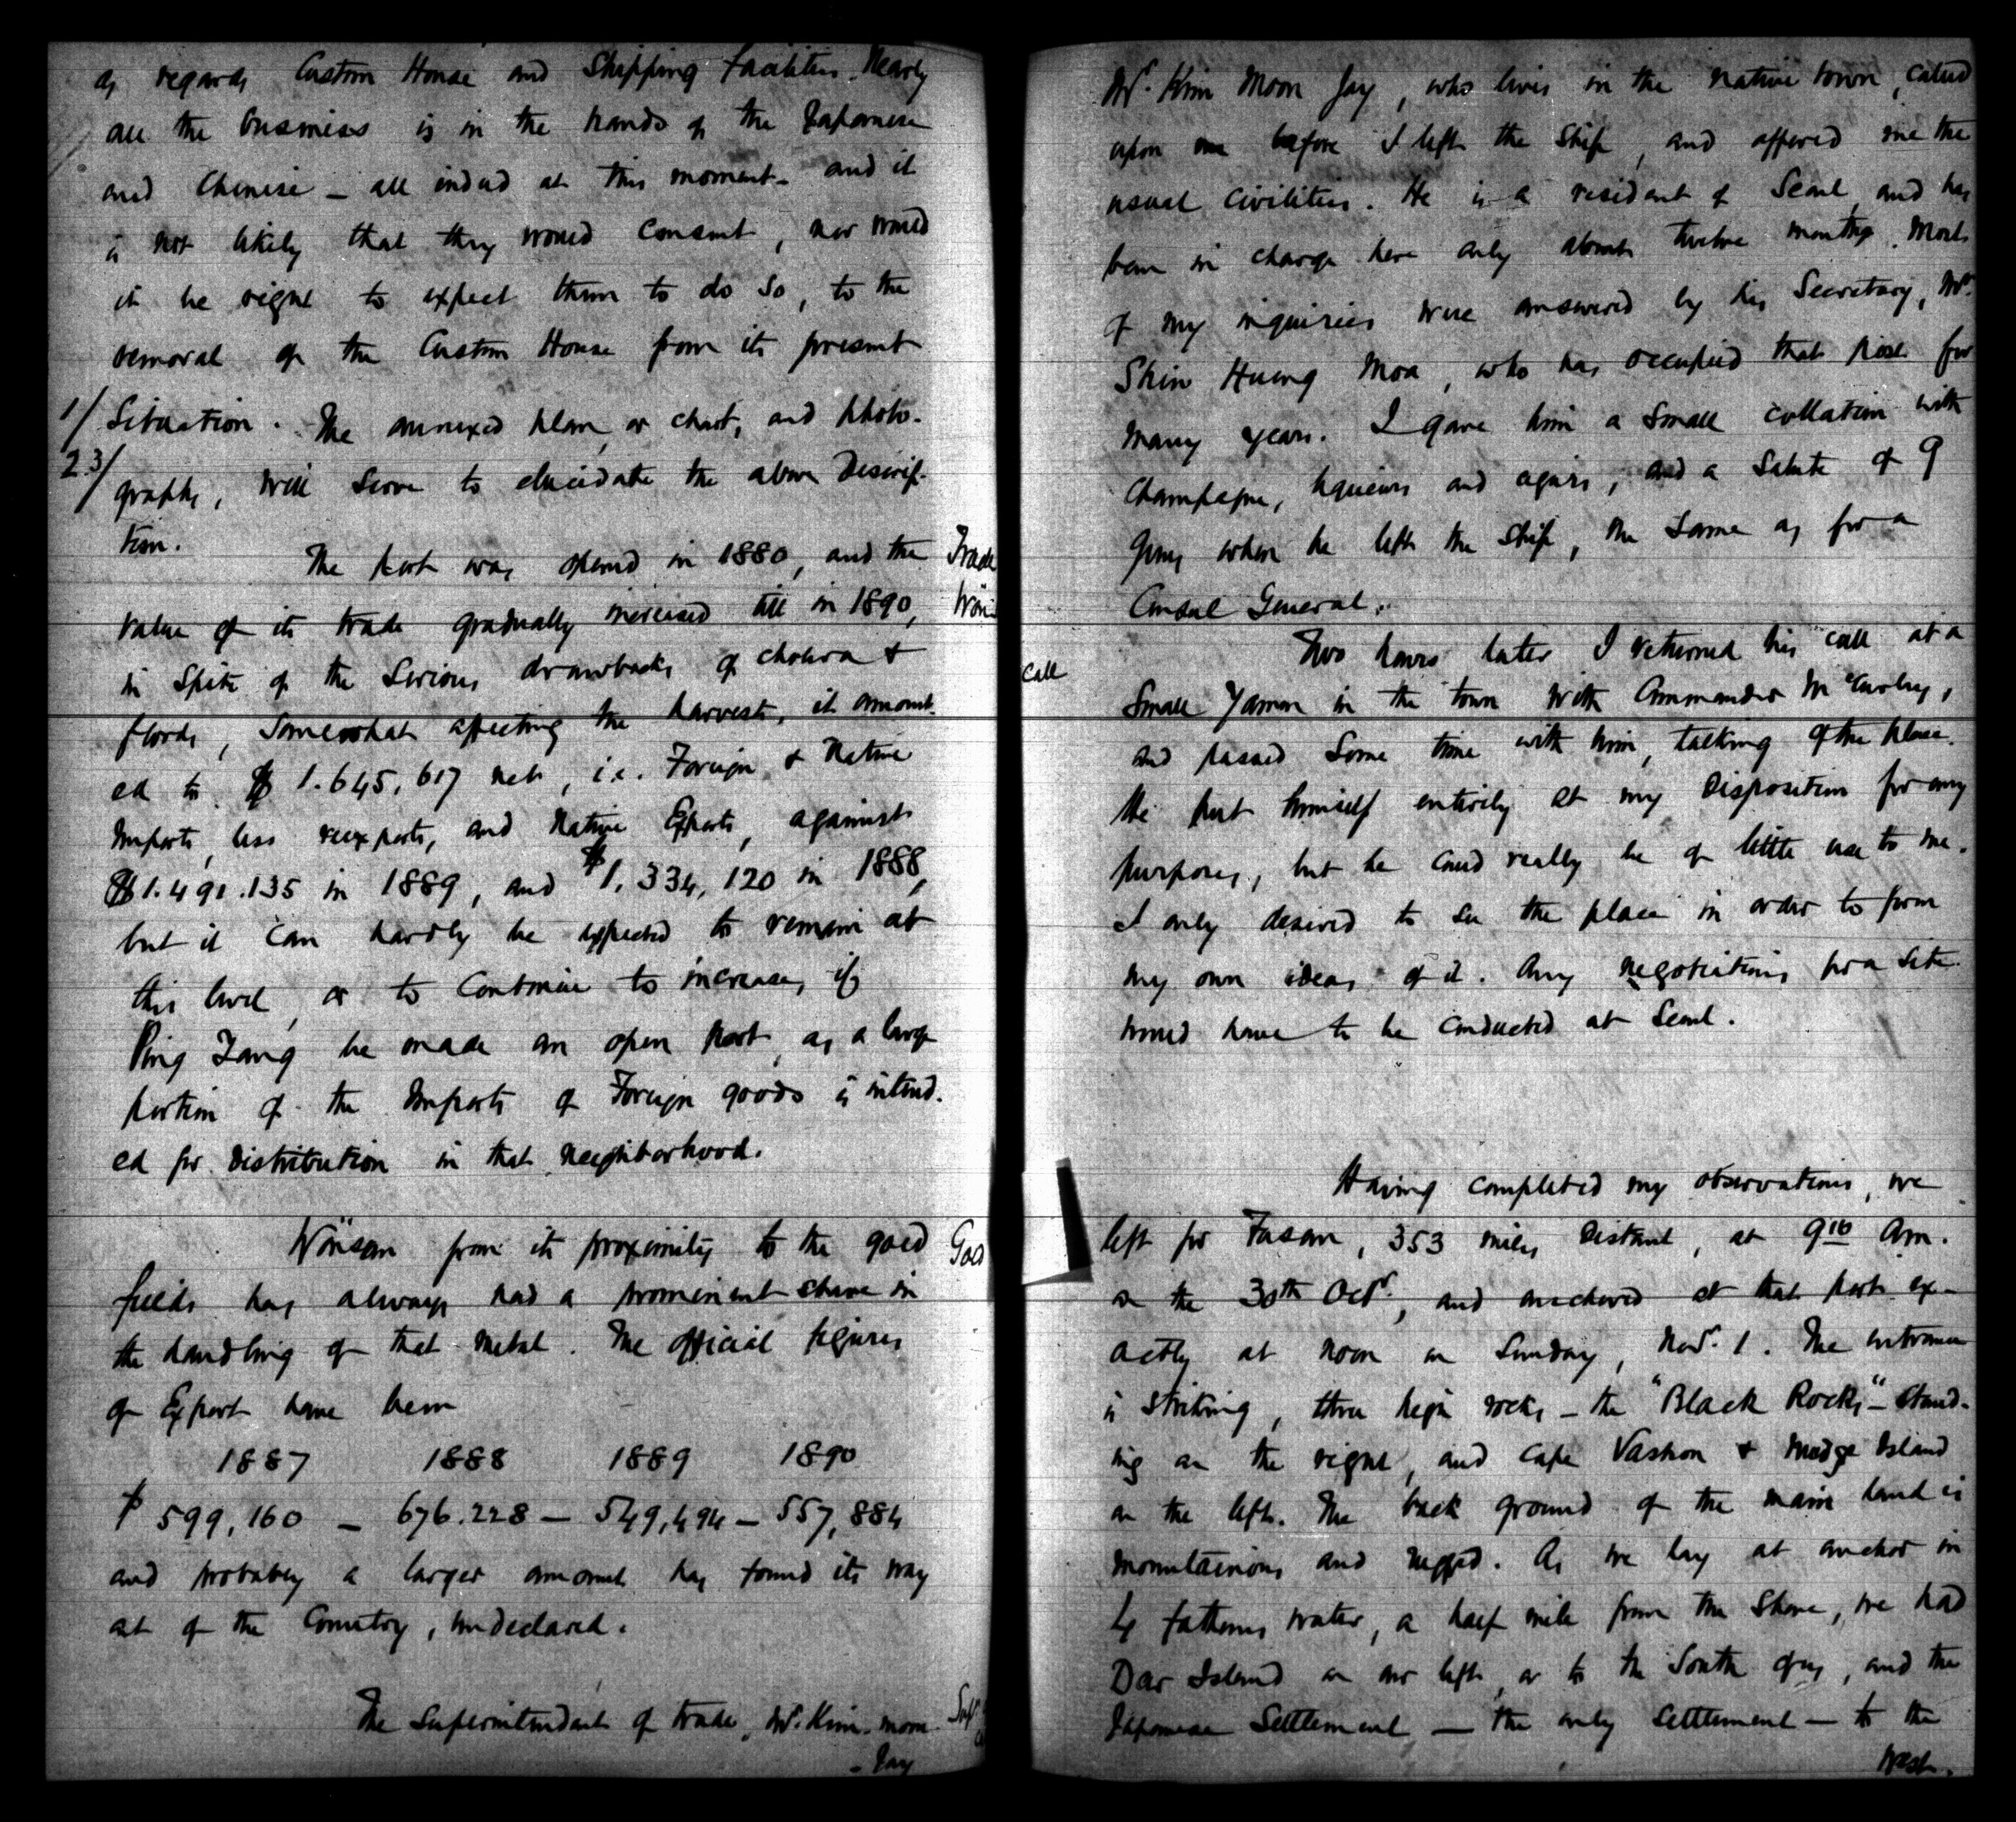 as regards Custom House and Shipping facilities. Nearly
all the business is in the hands of the Japanese
and Chinese – all indeed at this moment – and it
is not likely that they would consent, nor would
it be right to expect them to do so, to the
removal of the Custom House from its present
1/ Situation. The annexed plan or chart, and photo-
2.3/ graphs, will serve to elucidate the above descrip-
tion.
The port was opened in 1880, and the
value of its trade gradually increased till in 1890,
in spite of the serious drawbacks of cholera &
floods, somewhat affecting the harvest, it amount-
ed to $ 1.645,617 net, i.e. Foreign & Native
Imports, less reexports, and Native Exports, against
$1.491.135 in 1889, and $1,334,120 in 1888,
but it can hardly be expected to remain at
this level or to continue to increase, if
Ping Yang be made an open port, as a large
portion of the Imports of Foreign goods is intend-
ed for distribution in that neighborhood.
Wönsan from its proximity to the gold
fields has always had a prominent share in
the handling of that metal. The official figures
of Export have been
1887 1888 1889 1890
$ 599,160 – 676.228 – 549,494 – 557,884
and probably a larger amount has found its way
out of the Country, undeclared.
The Superintendent of trade, Mr. Kim-Moon-
-Jay
Trade
Wön
Gol
Sup
Mr. Kim Moon Jay, who lives in the native town, called
upon me before I left the ship, and offered me the
usual civilities. He is a resident of Seoul and has
been in charge here only about twelve months. Most
of my inquiries were answered by his Secretary, Mr.
Shin Huang Moa, who has occupied that post for
many years. I gave him a small collation with
Champagne, liqueurs and cigars, and a Salute of 9
guns when he left the ship, the same as for a
Consul General.
Call
Two hours later I returned his call at a
small Yamen in the town with Commander
and passed some time with him, talking of the place.
He put himself entirely at my disposition for any
purposes, but he could really be of little use to me.
I only desired to see the place in order to form
my own ideas of it. Any negotiations for a site
would have to be conducted at Seoul.
Having completed my observations, we
left for Fusan, 353 miles distant, at 9 10 Am.
on the 30th Octr., and anchored at that port ex-
actly at noon on Sunday, Nov. 1. The entrance
is striking, three high rocks – the "Black Rocks" – stand-
ing on the right, and Cape Vashon & Mudge Island
on the left. The back ground of the main land is
mountainous and rugged. As we lay at anchor in
4 fathoms water, a half mile from the shore, we had
Deer Island on our left or to the South of us, and the
Japanese Settlement – the only Settlement – to the
West.